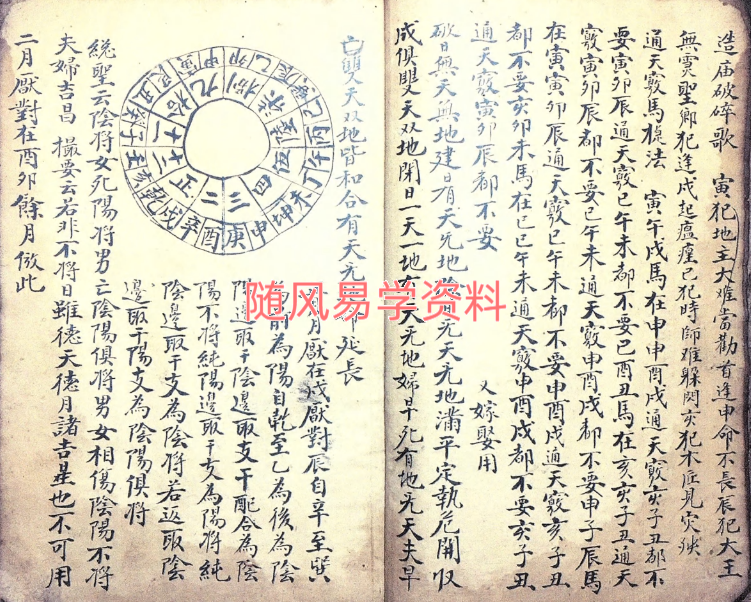 造庙破碎歌　寅犯地主大难當勸首逢申命不長辰犯大王
無灵聖卿犯逢戌起瘟瘟巳犯時師难躲閃亥犯木匠見灾殃
通天竅馬旋法　寅午戌馬在申申酉戌通天竅亥子丑都不
要寅卯辰通天竅巳午未都不要巳酉丑馬在亥亥子丑通天
竅寅卯辰都不要巳午未通天竅申酉戌都不要申子辰馬
在寅寅卯辰通天竅巳午未都不要申酉戌通天竅亥子丑
都不要亥卯未馬在巳巳午未通天竅申酉戌都不要亥子丑
通天竅寅卯辰都不要　又嫁娶用
破日無天無地建日有天无地除有无天无地滿平定執危開収
成俱雙天双地閉日一天一地有天无地婦早死有地无天夫早
亡雙天双地皆和合有天无地命延长
正二三四九十十一十二
辛酉庚申坤未丁午
戌乾亥壬子癸丑
月厭在戌厭對辰自辛至巽
為前為陽自乾至乙為後為陰
陽邊取干陰邊取支干配合為陰
陽不將純陽邊取干支為陽將純
陰邊取干支為陰將若返取陰
邊取干陽支為陰陽俱將
総聖云陰將女死陽將男亡陰陽俱將男女相傷陰陽不將
夫婦吉昌　撮要云若非不將日雖德天德月諸吉星也不可用
二月厭對在酉卯餘月倣此
随风易学资料